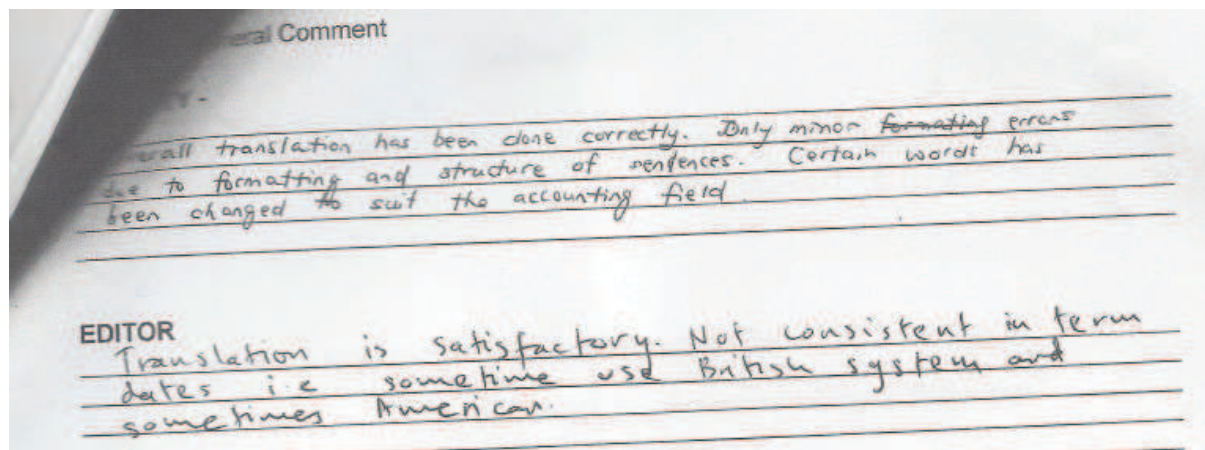 Comment
translation has been done correctly. Only minor formating errors
to formatting and structure of sentences. Certain words has
been changed to suit the accounting field.
EDITOR
Translation is satisfactory. Not consistent in term
dates i.e sometime use British system and
sometimes American.